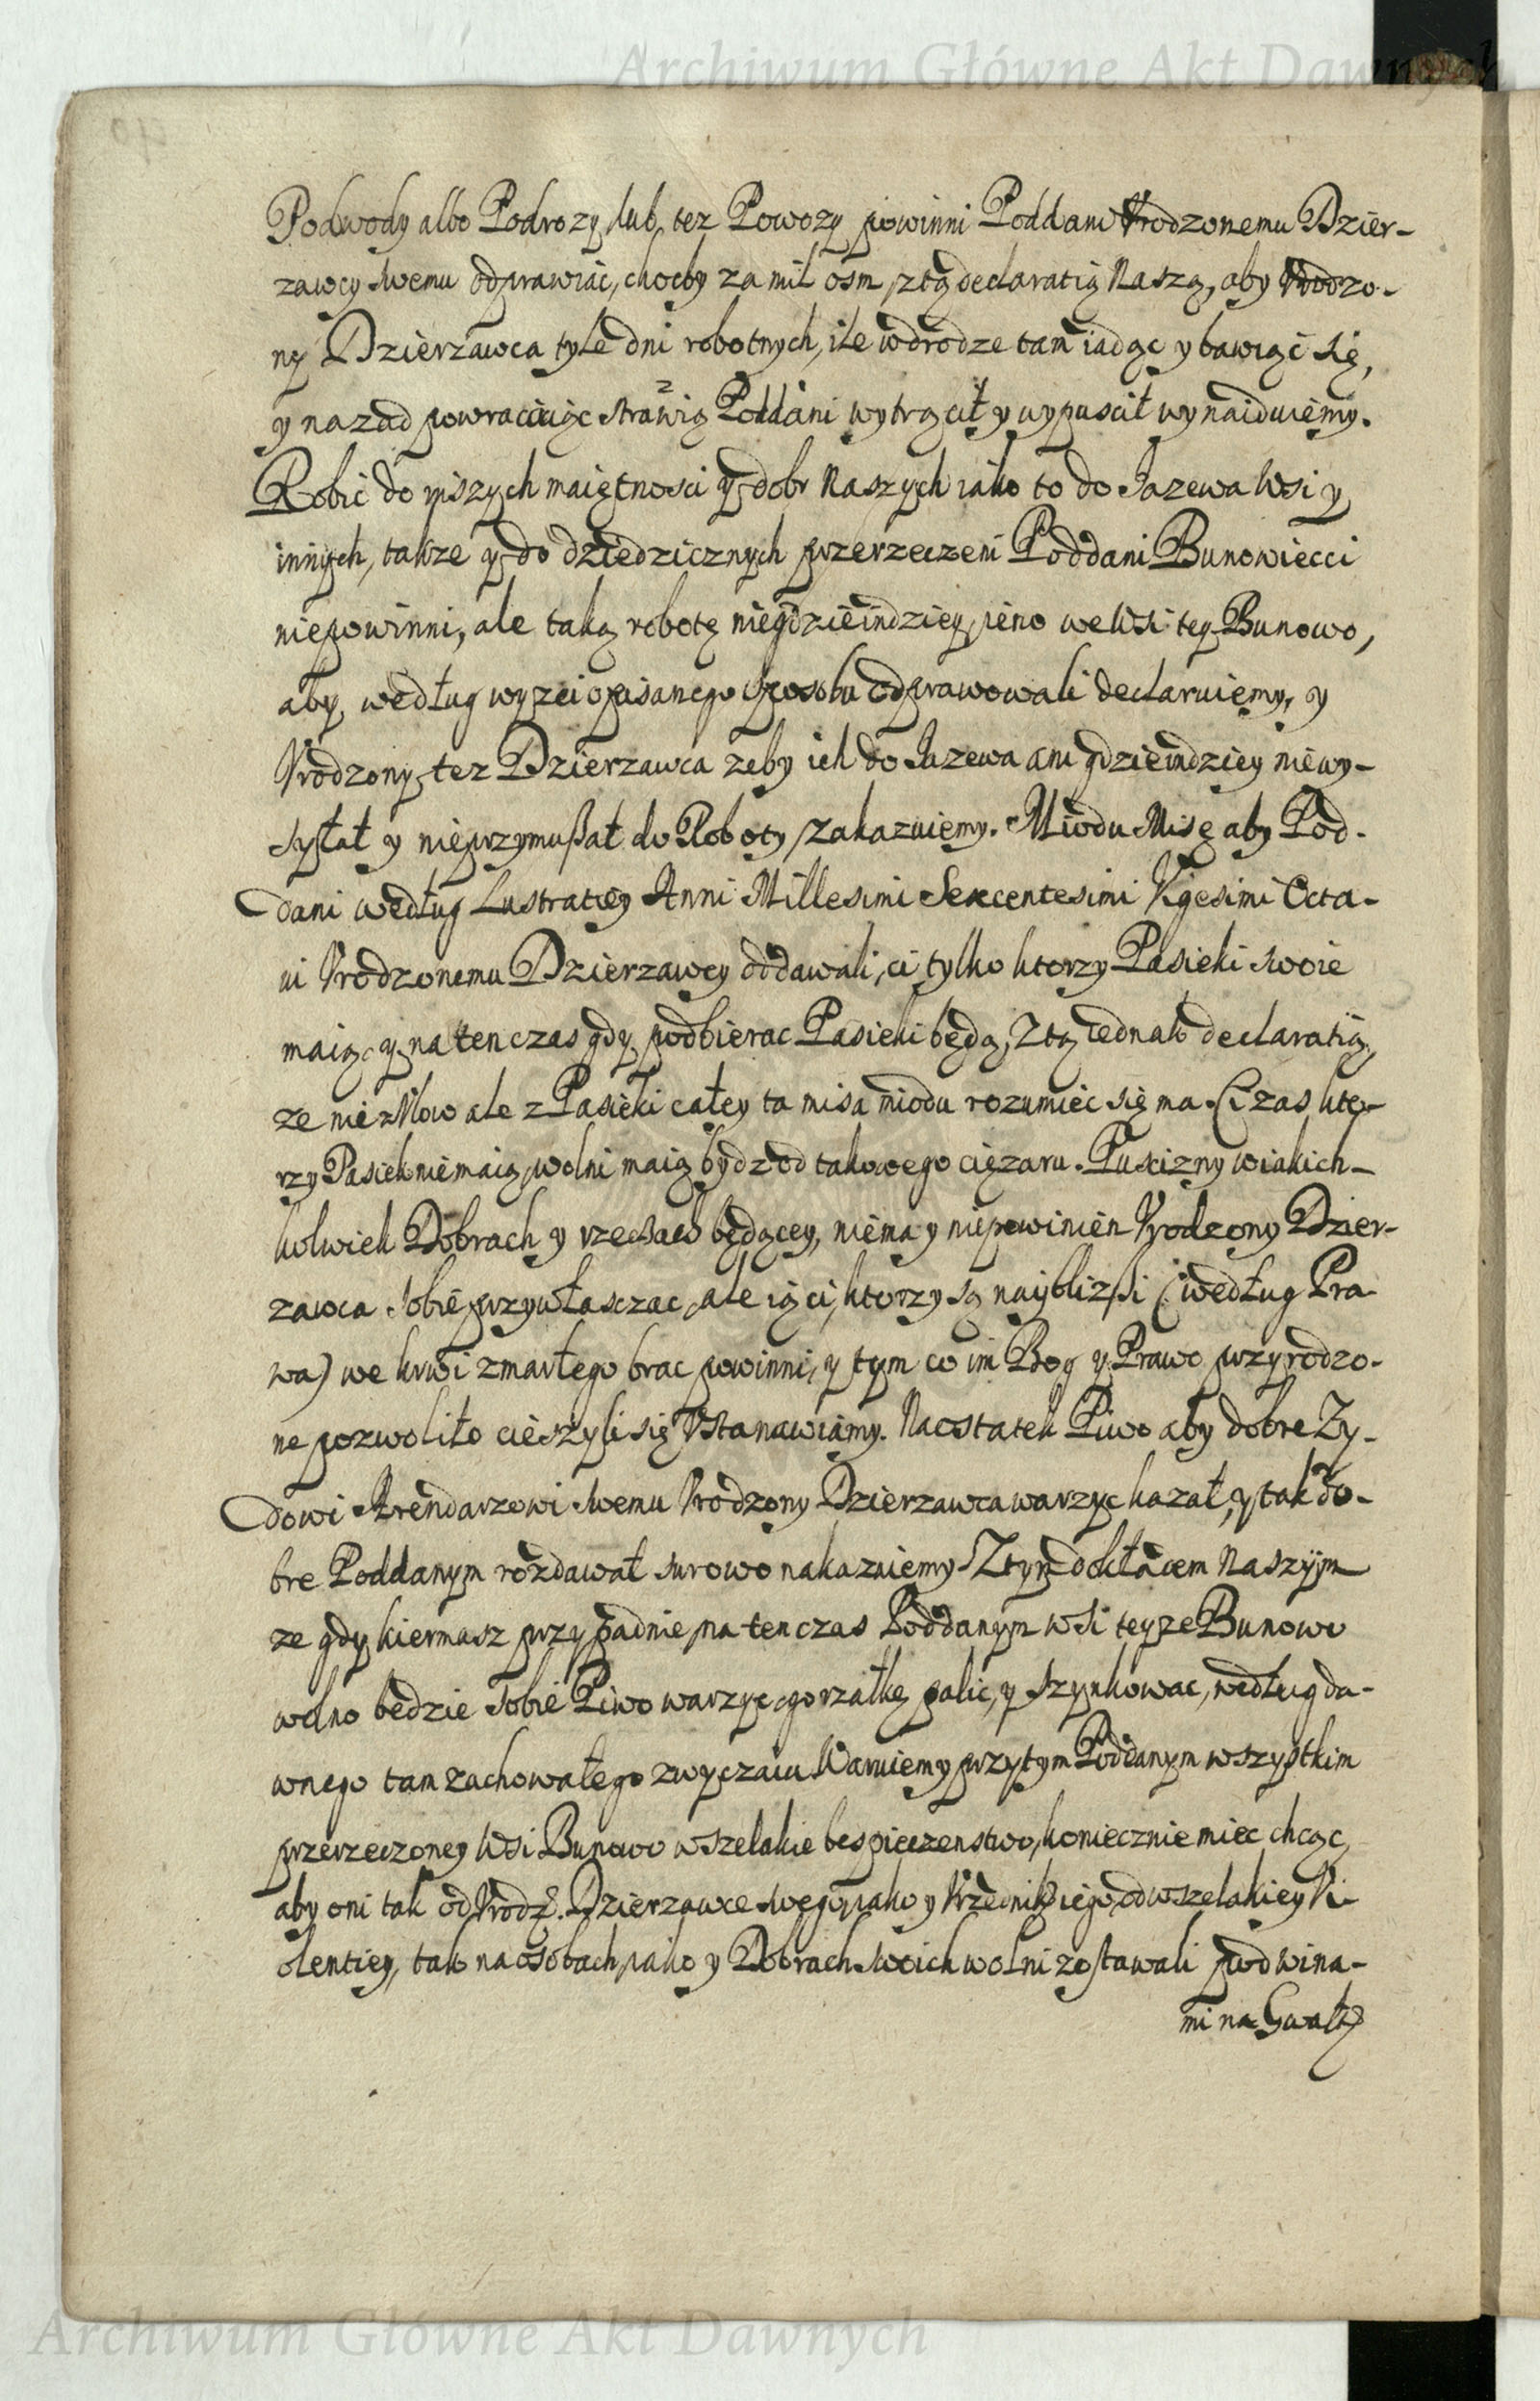 Archiwum Główne Akt Dawnych
Podwody albo Podrozy, lub tez Powozy powinni Poddani Vrodzonemu Dzier-
zawcy swemu odprawiać, choćby za mil osm, z tą declaratią Naszą, aby Vrodzo-
ny Dzierzawca tyle dni robotnych, ile w drodze tam iadąc y bawiąc się,
y nazad powracaiąc strawią Poddani wytrącił y wypuscił wynaiduiemy.
Robić do inszych maiętnosci y dobr Naszych iako to do Jazewa Wsi y
innych, takze y do dziedzicznych przerzeczeni Poddani Bunowiecci
niepowinni, ale taką robotę niegdzieindziey, ieno we Wsi tey Bunowo,
aby według wyzei opisanego sposobu odprawowali declaruiemy, y
Vrodzony tez Dzierzawca zeby ich do Jazewa ani gdzieindziey niewy-
syłał y nieprzymuszał do Roboty, zakazuiemy. Miodu Misę aby Pod-
dani według Lustratiey Anni Millesimi Sexcentesimi Vigesimi Octa-
ui Vrodzonemu Dzierzawcy oddawali, ci tylko ktorzy Pasieki swoie
maią, y na ten czas gdy podbierac Pasieki będą, Z tą iednak declaratią,
ze nie z Vlow ale z Pasieki całey ta misa miodu rozumiec się ma. Ci zas kto-
rzy Pasiek niemaią, wolni maią bydz od takowego cięzaru. Puscizny w iakich-
kolwiek Dobrach y rzeczach będącey, niema y niepowinien Vrodzony Dzier-
zawca sobie przywłasczac, ale ią ci, ktorzy są naybliszsi (według Pra-
wa) we krwi zmarłego brac powinni, y tym co im Bog y Prawo przyrodzo-
ne pozwoliło cieszyli się Vstanawiamy. Naostatek Piwo aby dobre Zy-
dowi Arendarzowi swemu Vrodzony Dzierzawca warzyc kazał, y tak do-
bre Poddanym rozdawał surowo nakazuiemy. Z tym dokładem Naszym
ze gdy kiermasz przypadnie, na ten czas Poddanym wsi teyze Bunowo
wolno będzie sobie Piwo warzyc, gorzałkę palic, y szynkowac, według da-
wnego tam zachowałego zwyczaiu. Waruiemy przytym Poddanym wszystkim
przerzeczoney Wsi Bunowo wszelakie bespieczenstwo, koniecznie miec chcąc,
aby oni tak od Vrodz. Dzierzawce swego, iako y Vrzednika iego, od wszelakiey Vi-
olentiey, tak na osobach, iako y Dobrach swoich wolni zostawali pod wina-
mi na Gwałty
Archiwum Główne Akt Dawnych